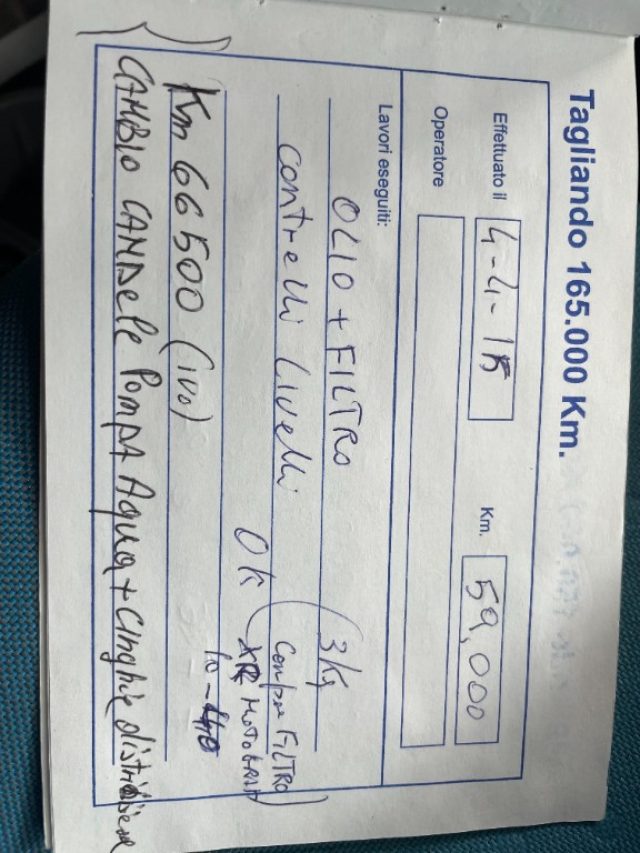 Tagliando 165.000 Km.
Effettuato il 4-4-18 Km. 59,000
Operatore
Lavori eseguiti:
OLIO + FILTRO (3kg
contrelli Livelli OK (compra FILTRO
MOTOBRIO)
10-
Km 66500 (ivo)
CAMBIO CANDele POMPA AQUA + CINghie distribisione